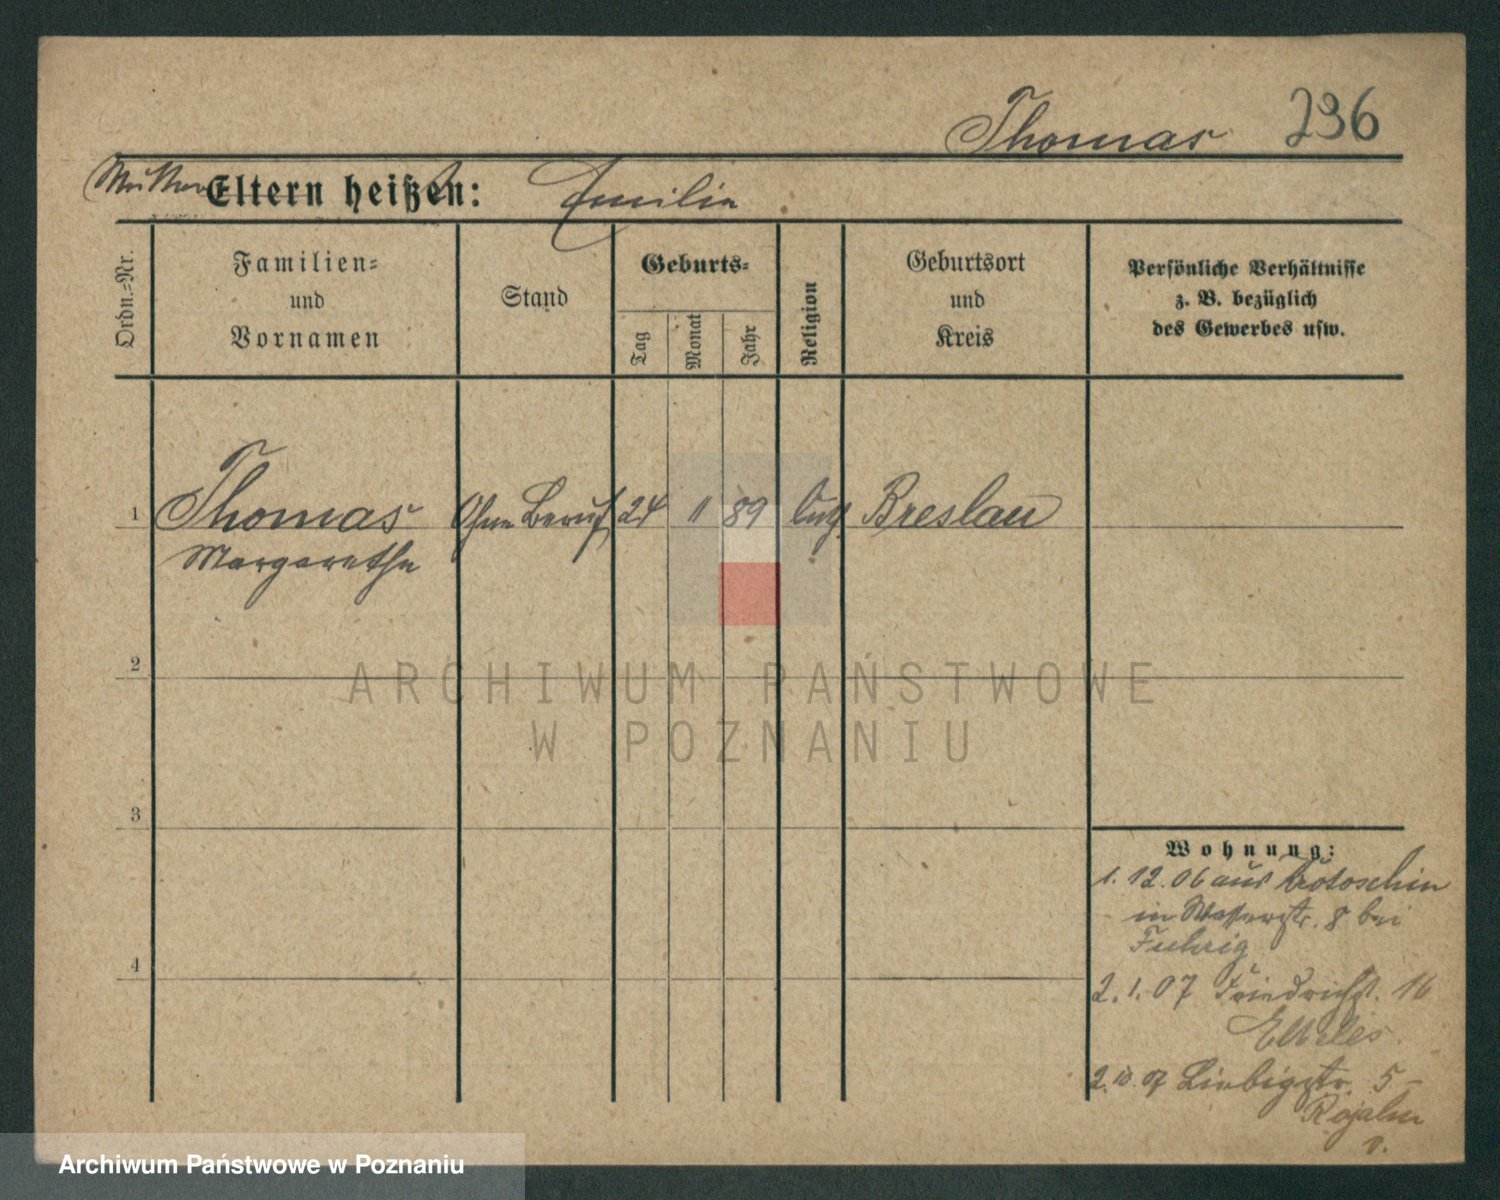 Thomas 236
Mutter Eltern heißen: Emilie
Ordn.=Nr.
Familien=
und
Vornamen
Stand
Geburts=
Tag
Monat
Jahr
Religion
Geburtsort
und
Kreis
Persönliche Verhältnisse
z. B. bezüglich
des Gewerbes usw.
1 Thomas Ohne Beruf 24 11 89 Breslau
Margarethe
2
3
4
Wohnung:
1. 12. 06 aus Krotoschin
in Wasserstr. 8 bei
Fuhrig
2. 1. 07 Friedrichst. 16
2. 10. 07 Liebigstr. 5
ARCHIWUM PAŃSTWOWE
W POZNANIU
Archiwum Państwowe w Poznaniu